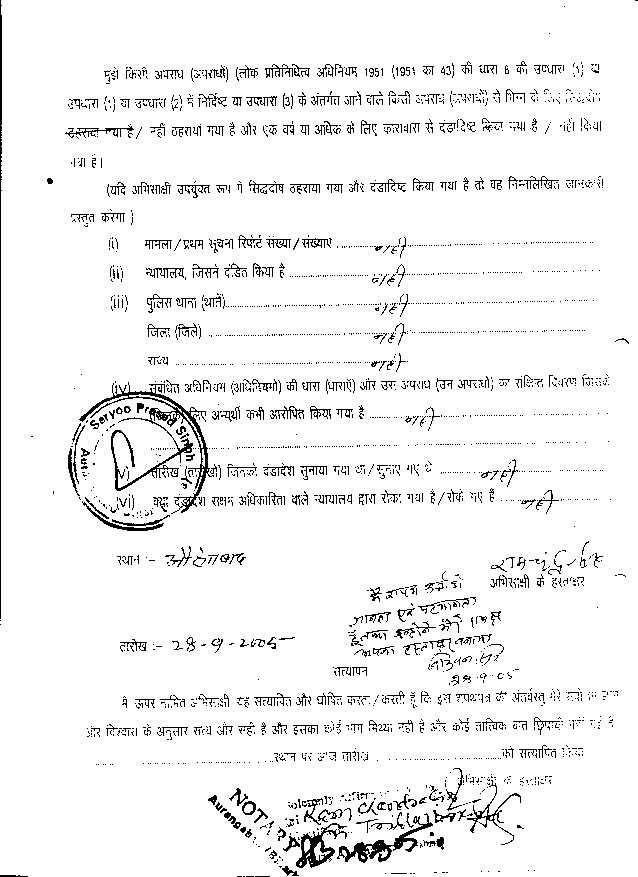 मुझे किसी अपराध (अपराधों) (लोक प्रतिनिधित्व अधिनियम 1951 (1951 का 43) की धारा 8 की उपधारा (1) या
उपधारा (1) या उपधारा (2) में निर्दिष्ट या उपधारा (3) के अंतर्गत आने वाले किसी अपराध (अपराधों) से भिन्न के लिए सिद्धदोष
ठहराया गया है / नहीं ठहराया गया है और एक वर्ष या अधिक के लिए कारावास से दंडादिष्ट किया गया है / नहीं किया
गया है।
(यदि अभिसाक्षी उपर्युक्त रूप में सिद्धदोष ठहराया गया और दंडादिष्ट किया गया है तो वह निम्नलिखित जानकारी
प्रस्तुत करेगा )
(i) मामला / प्रथम सूचना रिपोर्ट संख्या / संख्याएं नहीं
(ii) न्यायालय, जिसने दंडित किया है नहीं
(iii) पुलिस थाना (थाने) नहीं
जिला (जिले) नहीं
राज्य नहीं
(iv) संबंधित अधिनियम (अधिनियमों) की धारा (धाराएँ) और उस अपराध (उन अपराधों) का संक्षिप्त विवरण जिसके
लिए अभ्यर्थी कभी आरोपित किया गया है नहीं
Saryoo Prasad Singh
(v) तारीख (तारीखों) जिनको दंडादेश सुनाया गया था / सुनाए गए थे नहीं
(vi) क्या दंडादेश सक्षम अधिकारिता वाले न्यायालय द्वारा रोका गया है / रोके गए हैं नहीं
स्थान :- औरंगाबाद
अभिसाक्षी के हस्ताक्षर
तारीख :- 28-9-2005
28.9.05
सत्यापन
मैं ऊपर नामित अभिसाक्षी यह सत्यापित और घोषित करता / करती हूँ कि इस शपथपत्र की अंतर्वस्तु मेरे सर्वोत्तम ज्ञान
और विश्वास के अनुसार सत्य और सही है और इसका कोई भाग मिथ्या नहीं है और कोई तात्विक बात छिपायी नहीं गई है
स्थान पर आज तारीख को सत्यापित किया
अभिसाक्षी के हस्ताक्षर
NOTARY
Ram Chandra